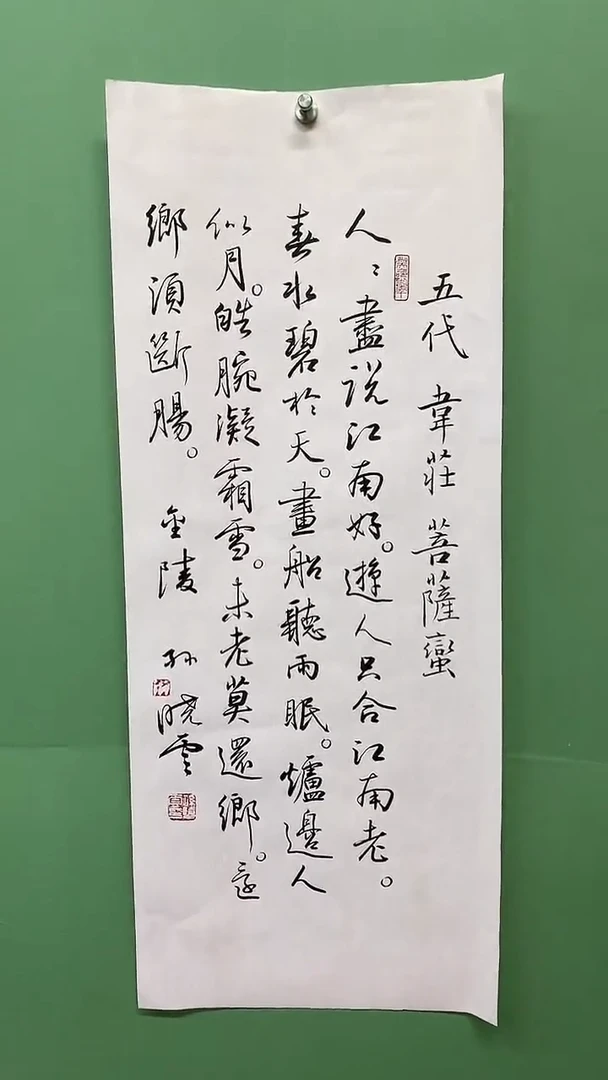 五代 韋莊 菩薩蠻
人〻盡説江南好。遊人只合江南老。
春水碧於天。畫船聽雨眠。爐邊人
似月。皓腕凝霜雪。未老莫還鄉。還
鄉須斷腸。 金陵 孙晓雲